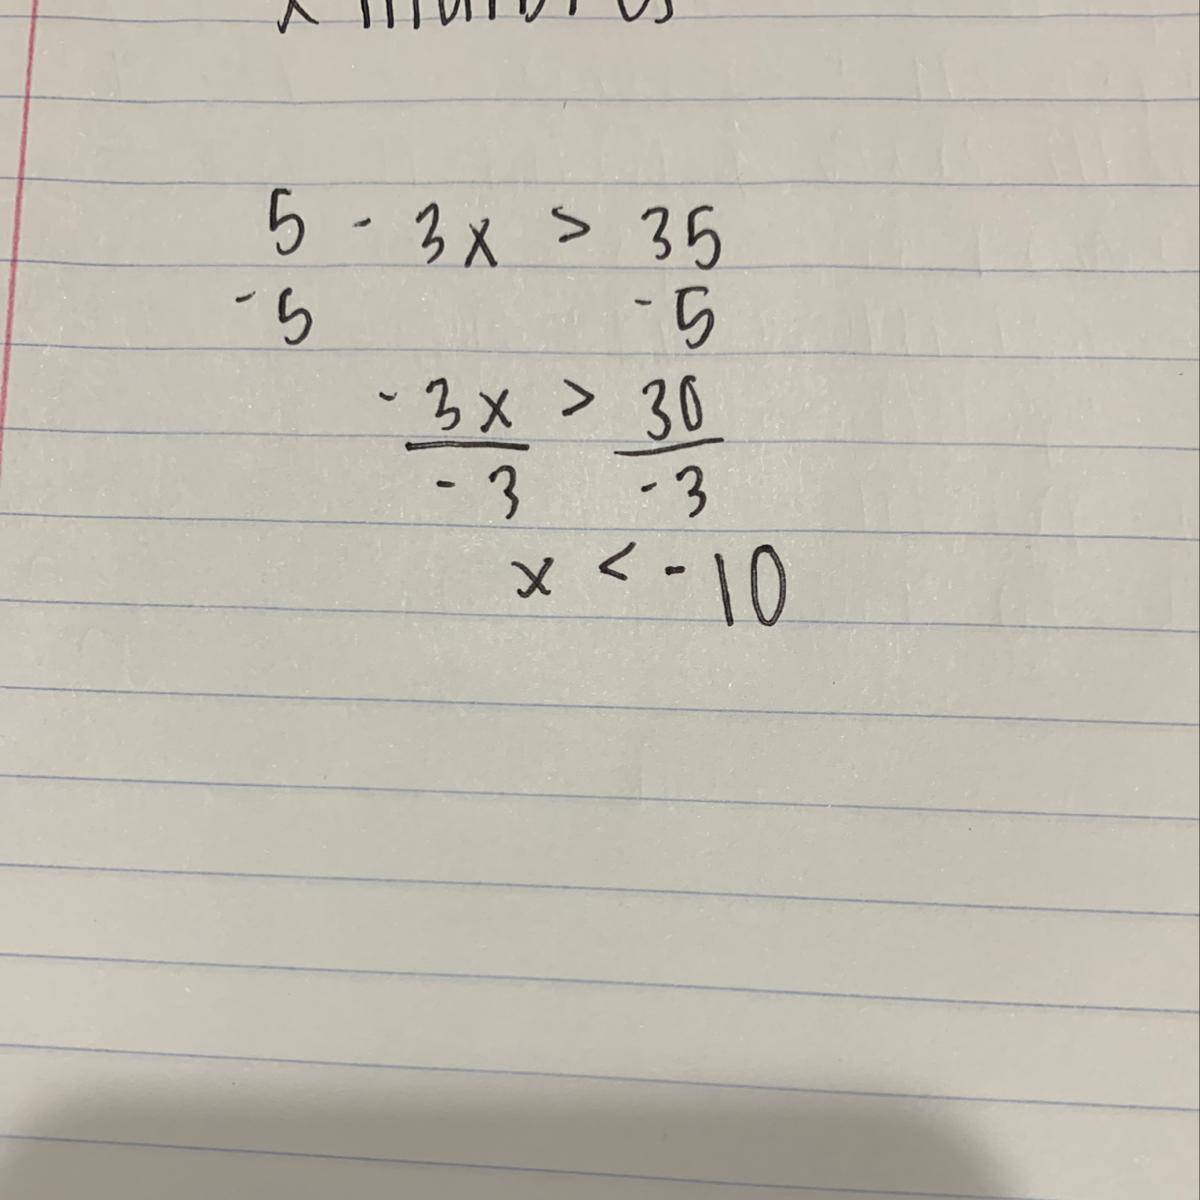 5 - 3x > 35
-5 -5
-3x > 30
-3 -3
x < -10